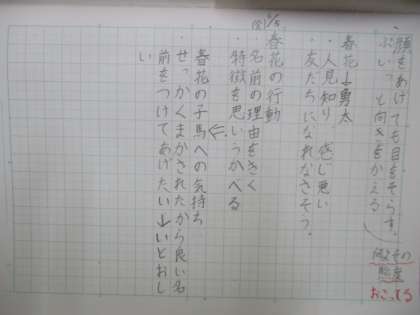 顔をあげても目をそらす。
ぷいっと向きをかえる
その
態度
おこってる
春花→勇太
・人見知り 感じ悪い
・友だちになれなさそう。
春花の行動
・名前の理由をきく
・特徴を思いうかべる
春花の子馬への気持ち
・せっかくまかされたから良い名
前をつけてあげたい→いとおし
い